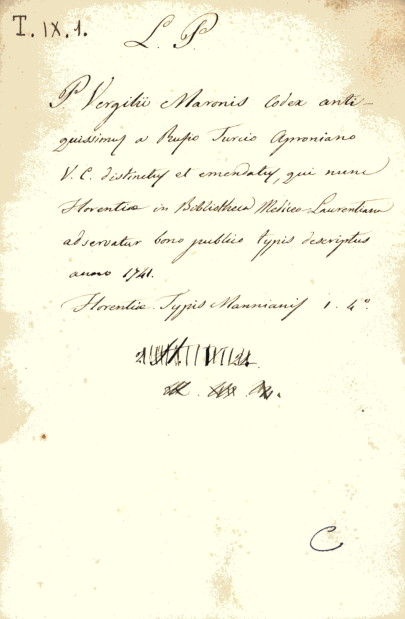 T. IX. 1.
L. P.
P Vergilii Maronis Codex anti-
quissimus a Rufo Turcio Aproniano
V. C. distinctus et emendatus, qui nunc
Florentiae in Bibliotheca Mediceo-Laurentiana
adservatur bono publico typis descriptus
anno 1741.
Florentiae Typis Mannianis 1. 4°.
C